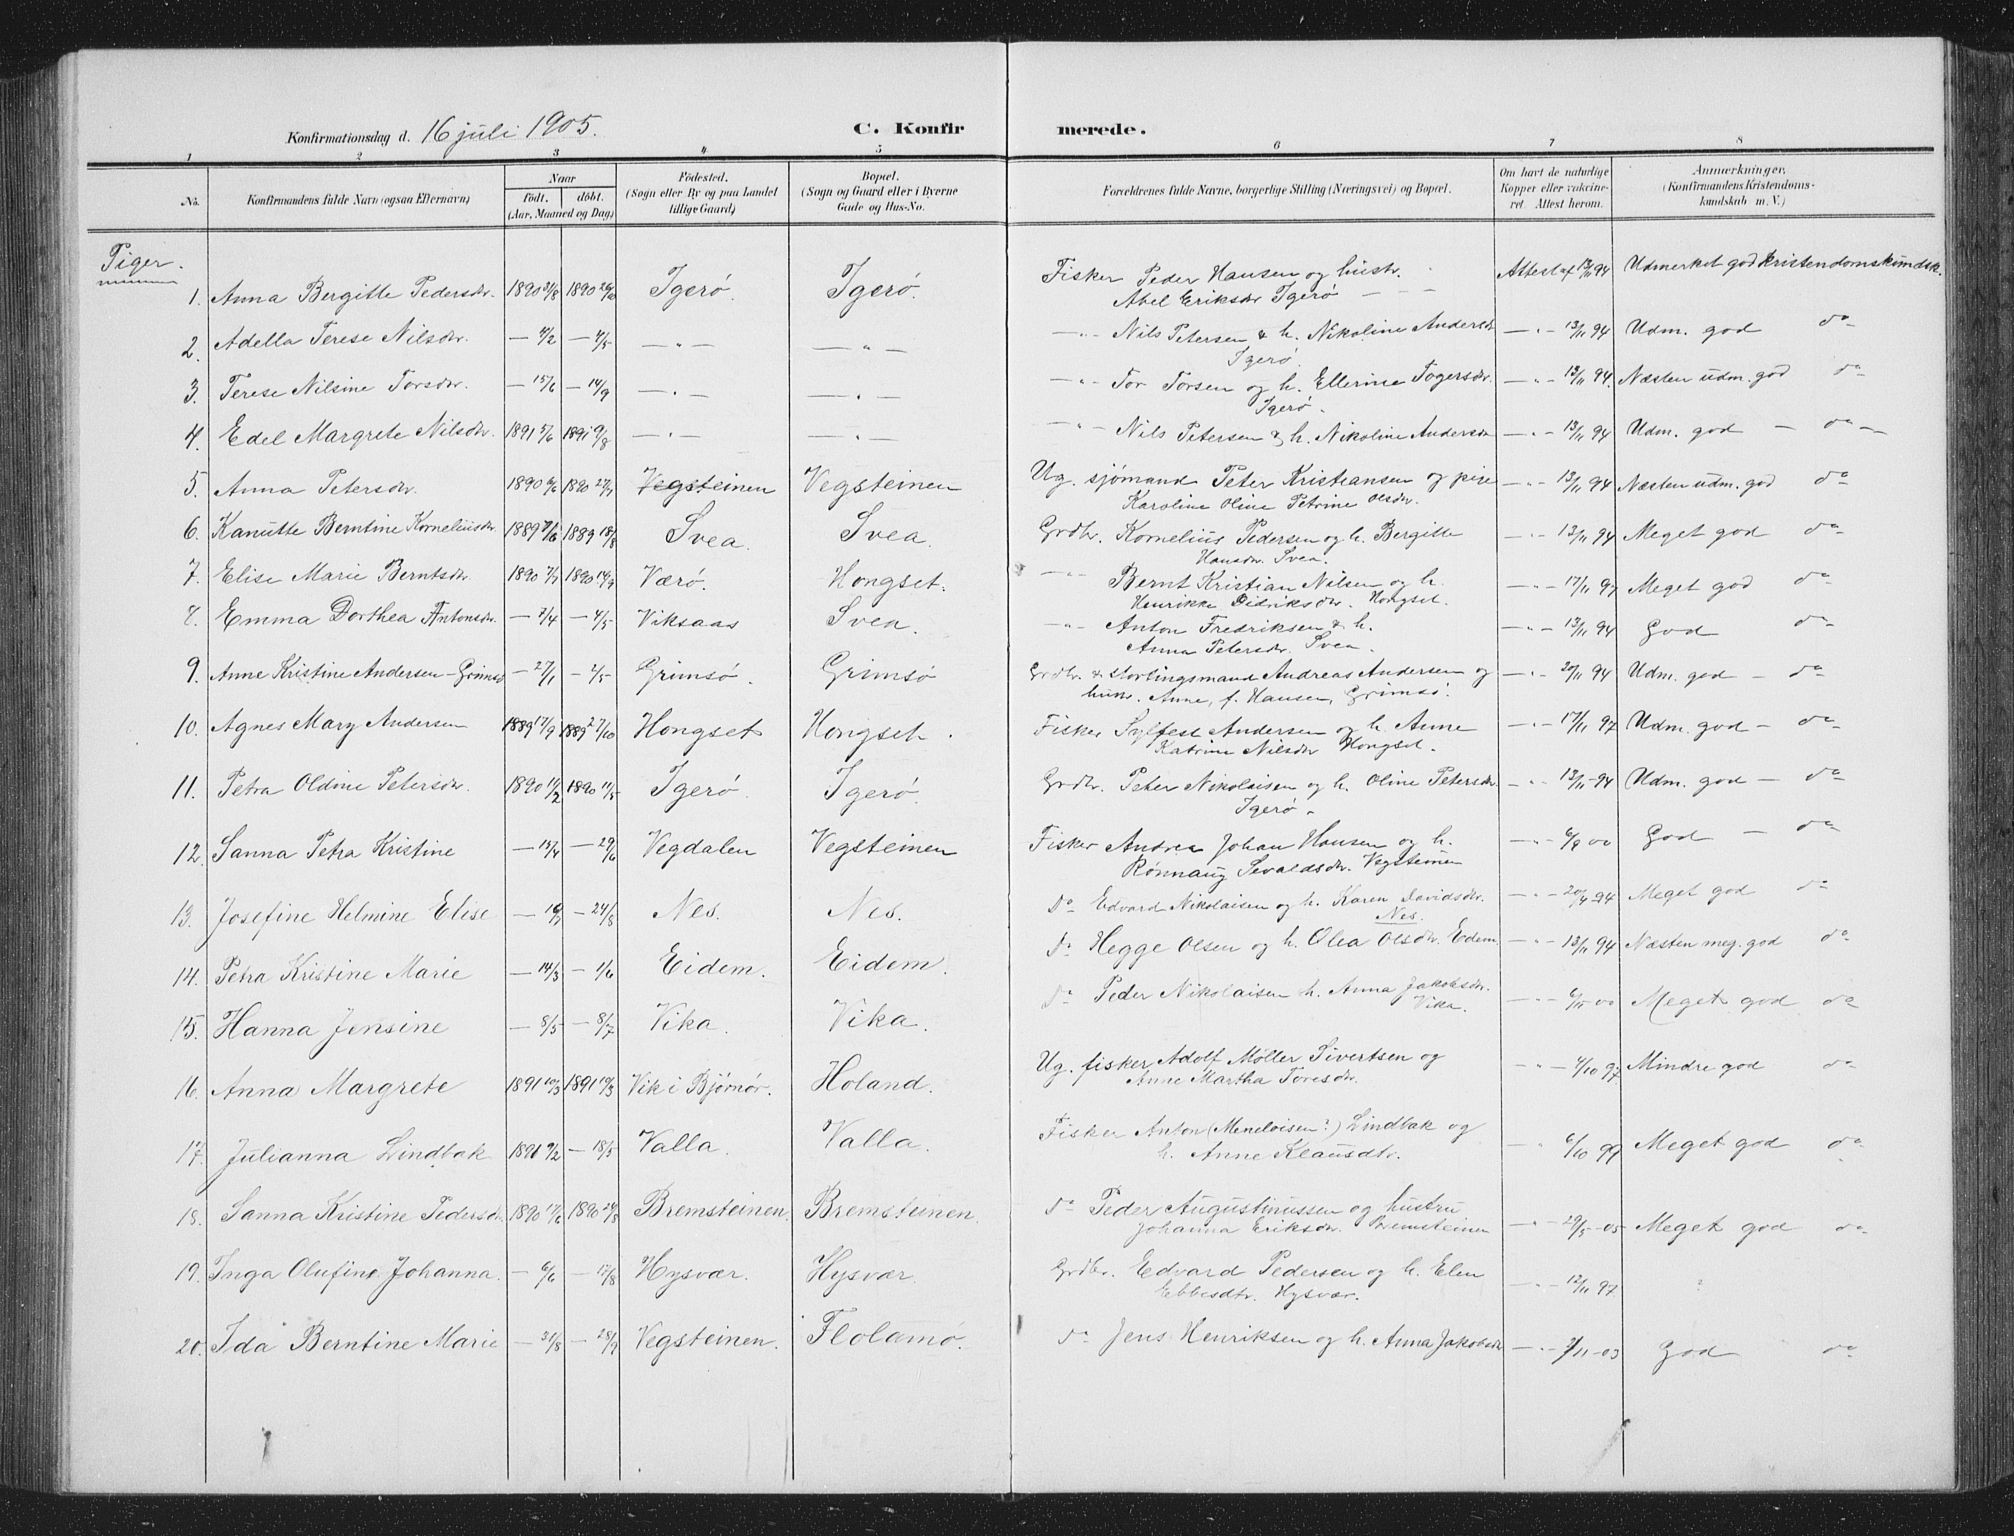 Konfirmationsdag d. 16 juli 1905. C. Konfirmerede.
1 2 3 4 5 6 7 8
No. Konfirmandens fulde Navn (ogsaa Efternavn) Naar født. døbt. (Aar, Maaned og Dag) Fødested. (Sogn eller By og paa Landet tillige Gaard) Bopæl. (Sogn og Gaard eller i Byerne Gade og Hus-No. Forældrenes fulde Navne, borgerlige Stilling (Næringsvei) og Bopæl. Om havt de naturlige Kopper eller vakcineret. Attest herom. Anmerkninger. (Konfirmandens Kristendomskundskab m. V.)
Piger.
1. Anna Bergitte Pedersdr. 1890 31/8 1890 26/10 Igerø. Igerø. Fisker Peder Hansen og hustr. Attest af 13/11 94 Udmerket god kristendomskundsk.
Abel Eriksdr Igerø
2. Adella Terese Nilsdr. — 4/2 — 4/5 — " — — " — — " — Nils Petersen & h. Nikoline Andersdr — " — 13/11 94 Udm. god do
Igerø
3. Terese Nilsine Torsdr. — 15/6 — 14/9 — " — — " — — " — Tor Torsen og h. Ellerine Togersdr. — " — 13/11 94. Næsten udm. god do
Igerø.
4. Edel Margrete Nilsdr. 1891 5/6 1891 9/8 — " — — " — — " — Nils Petersen & h. Nikoline Andersdr — " — 13/11 94 Udm. god — do —
5. Anna Petersdr. 1890 6/6 1890 27/7 Vegsteinen Vegsteinen Ug. sjømand Peter Kristiansen og pige — " — 13/11 94 Næsten udm. god do
Karoline Oline Petrine Olsdr.
6. Kanutte Berntine Korneliusdr 1889 7/6 1889 18/8 Svea. Svea. Grdbr. Kornelius Pedersen og h. Bergitte — " — 13/11 94 Meget god do
Hansdr. Svea.
7. Elise Marie Berntsdr. 1890 7/7 1890 14/9 Værø. Hongset. — " — Bernt Kristian Nilsen og h. — " — 17/11 97 Meget god do
Henrikke Didriksdr. Hongset.
8. Emma Dorthea Antonsdr. — 7/4 — 4/5 Viksaas Svea. — " — Anton Fredriksen & h. — " — 13/11 94 God do
Anna Petersdr. Svea.
9. Anne Kristine Andersen-Grimsø — 27/1 — 2/5 Grimsø. Grimsø Grdbr. & stortingsmand Andreas Andersen og — " — 20/11 94 Udm. god — do
hustr. Anne, f. Hansen, Grimsø.
10. Agnes Mary Andersen 1889 17/9 1889 27/10 Hongset Hongset. Fisker Sylfest Andersen og h. Anne — " — 17/11 97 Udm. god — do
Katrine Nilsdr Hongset.
11. Petra Oldine Petersdr. 1890 11/2 1890 11/5 Igerø. Igerø. Grdbr. Peter Nikolaisen og h. Oline Petersdr. — " — 13/11-94 Udm. god — do
Igerø.
12. Sanna Petra Kristine — 13/4 — 29/6 Vegdalen Vegsteinen Fisker Andrea Johan Hansen og h. — " — 6/9 00 God — do
Rønnaug Sevaldsdr. Vegsteinen
13. Josefine Helmine Elise — — 24/8 Nes. Nes. do Edvard Nikolaisen og h. Karen Davidsdr. — " — 20/4 94 Meget god do
Nes.
14. Petra Kristine Marie — 14/3 — 1/6 Eidem. Eidem. do Hegge Olsen og h. Olea Olsdr. Edem. — " — 13/11 94 Næsten meg. god do
15. Hanna Jensine — 8/5 — 8/7 Vika. Vika. do Peder Nikolaisen h. Anna Jakobsdr. — " — 00 Meget god do
Vika.
16. Anna Margrete 1891 10/3 1891 19/3 Vik i Bjørnør. Holand. Ug. fisker Adolf Møller Sivertsen og — " — 4/10 97 Mindre god do
Anne Martha Toresdr.
17. Julianna Lindbak 1891 9/2 — 18/5 Valla. Valla. Fisker Anton (Meneloisen?) Lindbak og — " — 6/10 99 Meget god do
h. Anne Klausdtr.
18. Sanna Kristine Pedersdr. 1890 17/6 1890 24/8 Bremsteinen. Bremsteinen. do Peder Augustinussen og hustru — " — 29/5-05 Meget god do
Johanna Eriksdr. Bremsteinen
19. Inga Olufine Johanna. — 6/6 — 17/8 Hysvær. Hysvær. Grdbr. Edvard Pedersen og h. Elen — " — 12/11 97. ?
Ebbesdtr. Hysvær.
20. Ida Berntine Marie — 31/8 — 28/9 Vegsteinen. Flolamø. do Jens Henriksen og h. Anna Jakobsdr — " — 7/11-03 God do